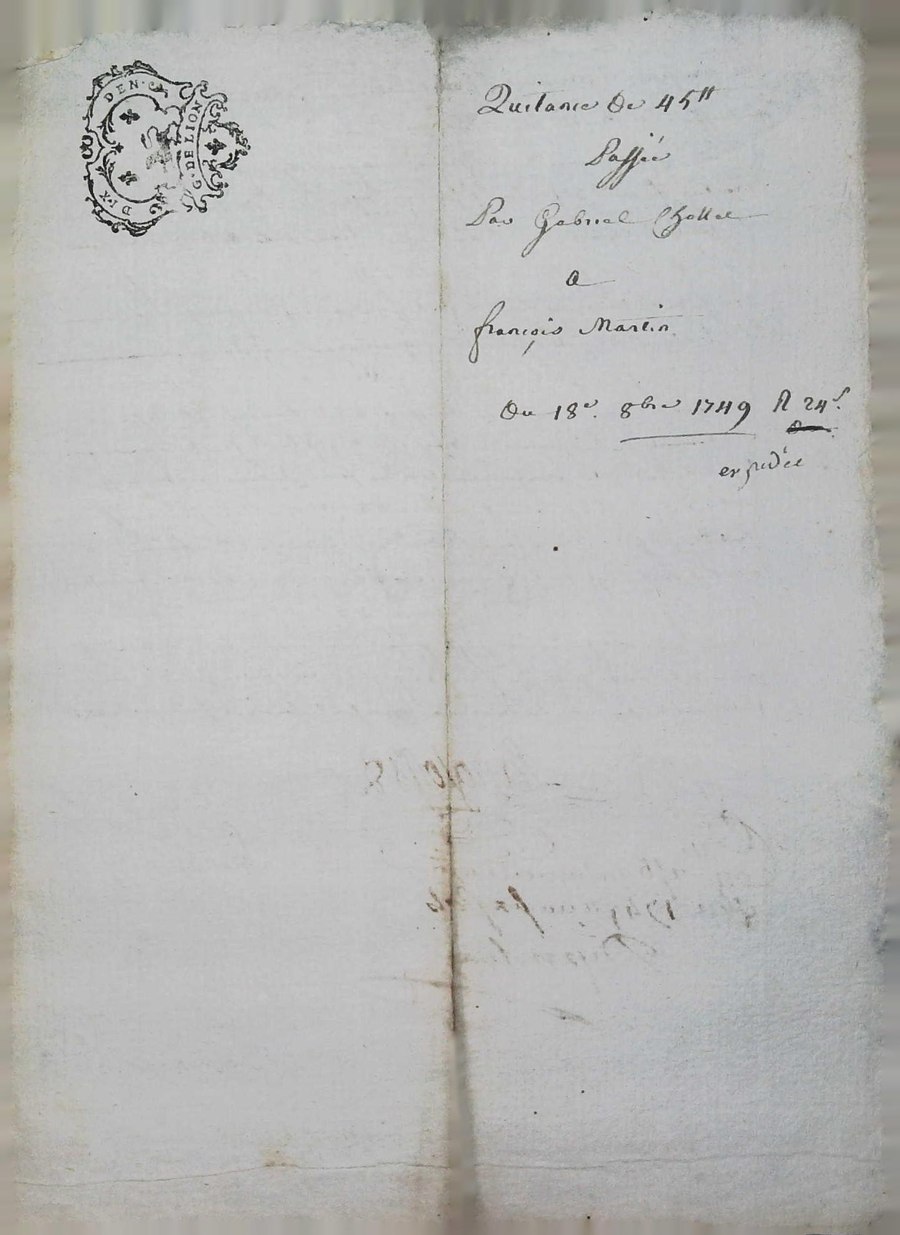 DIX DEN. G. DE LION
Quitance De 45tt
Passée
Par Gabriel
a
françois Martin
Du 18e. 8bre 1749 R 24s.
expediée